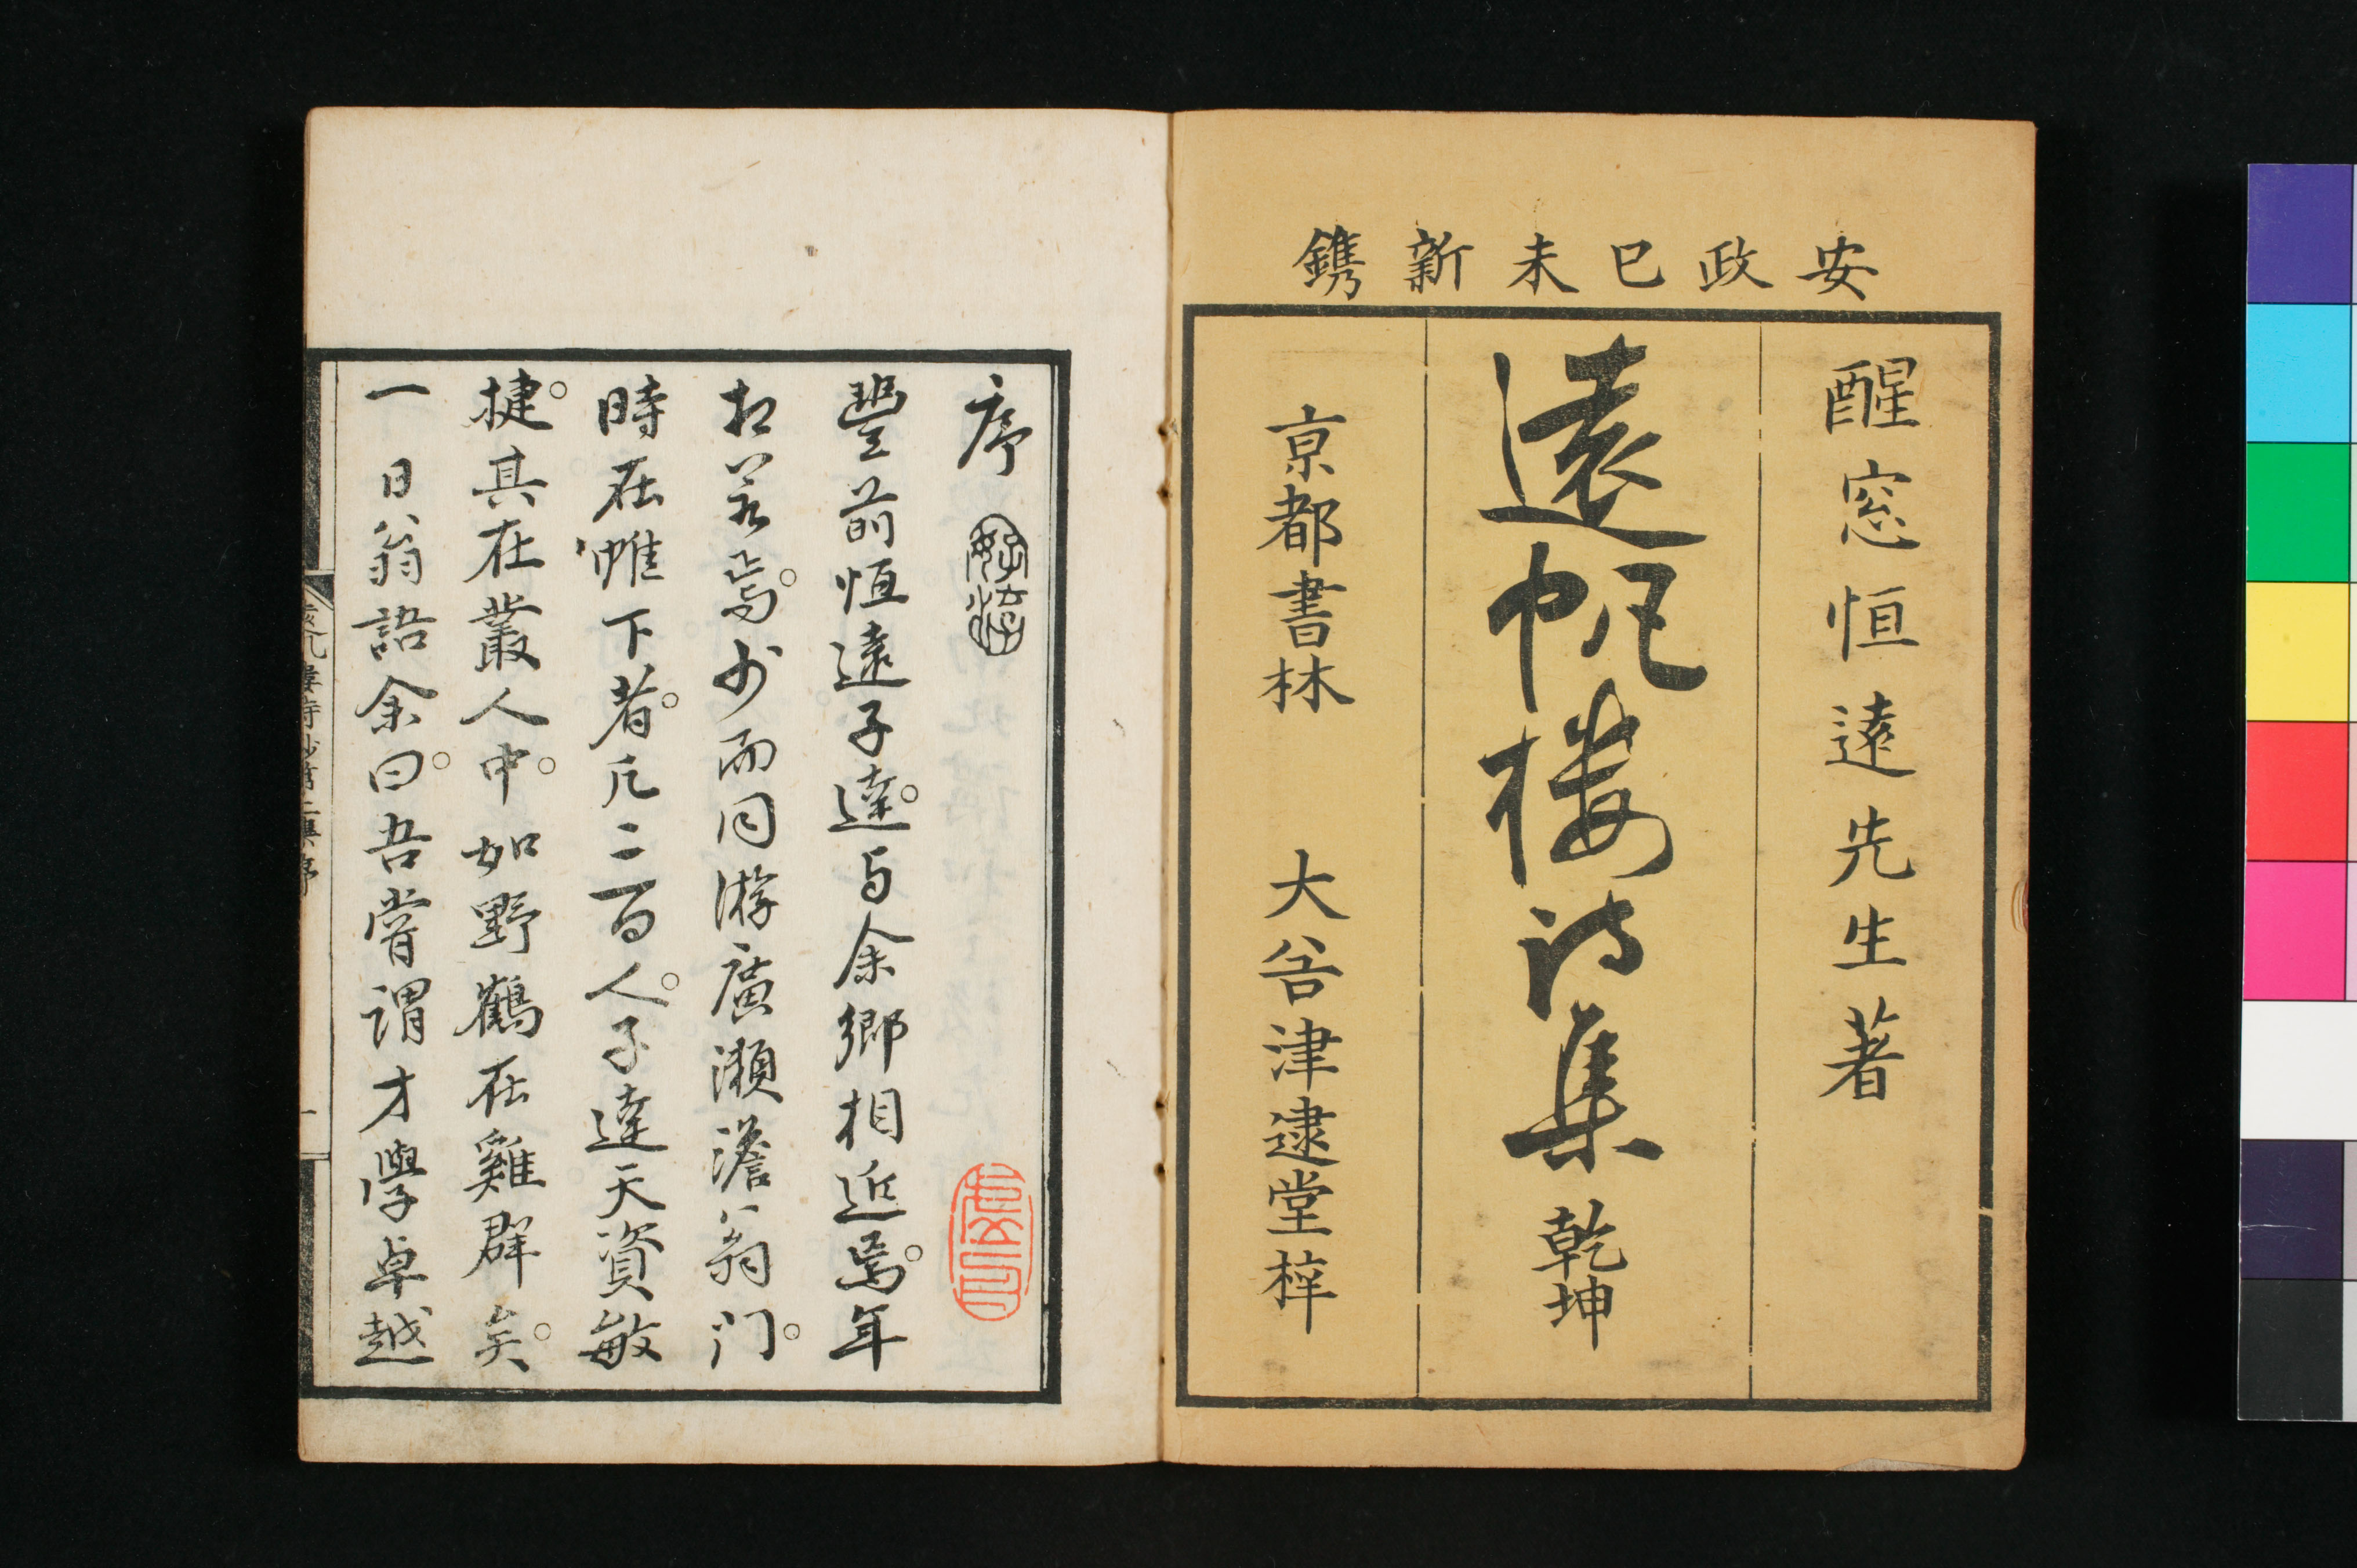 安政已未新鐫
醒窓恒遠先生著
遠帆樓詩集 乾坤
京都書林 大谷津逮堂梓
序
豐前恒遠子達。与余鄉相近焉。年
相若焉。少而同游廣瀨澹翁门。
時在帷下者。凢二百人。子達天資敏
捷。其在叢人中。如野鶴在雞群矣。
一日翁語余曰。吾嘗謂才學卓越